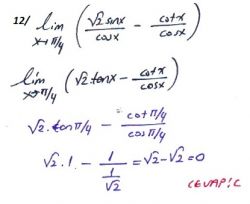 12/ lim x→π/4 (√2 sinx/cosx − cotx/cosx)
lim x→π/4 (√2.tanx − cotx/cosx)
√2.tanπ/4 − cotπ/4/cosπ/4
√2.1 − 1/(1/√2) = √2−√2=0
CEVAP:C